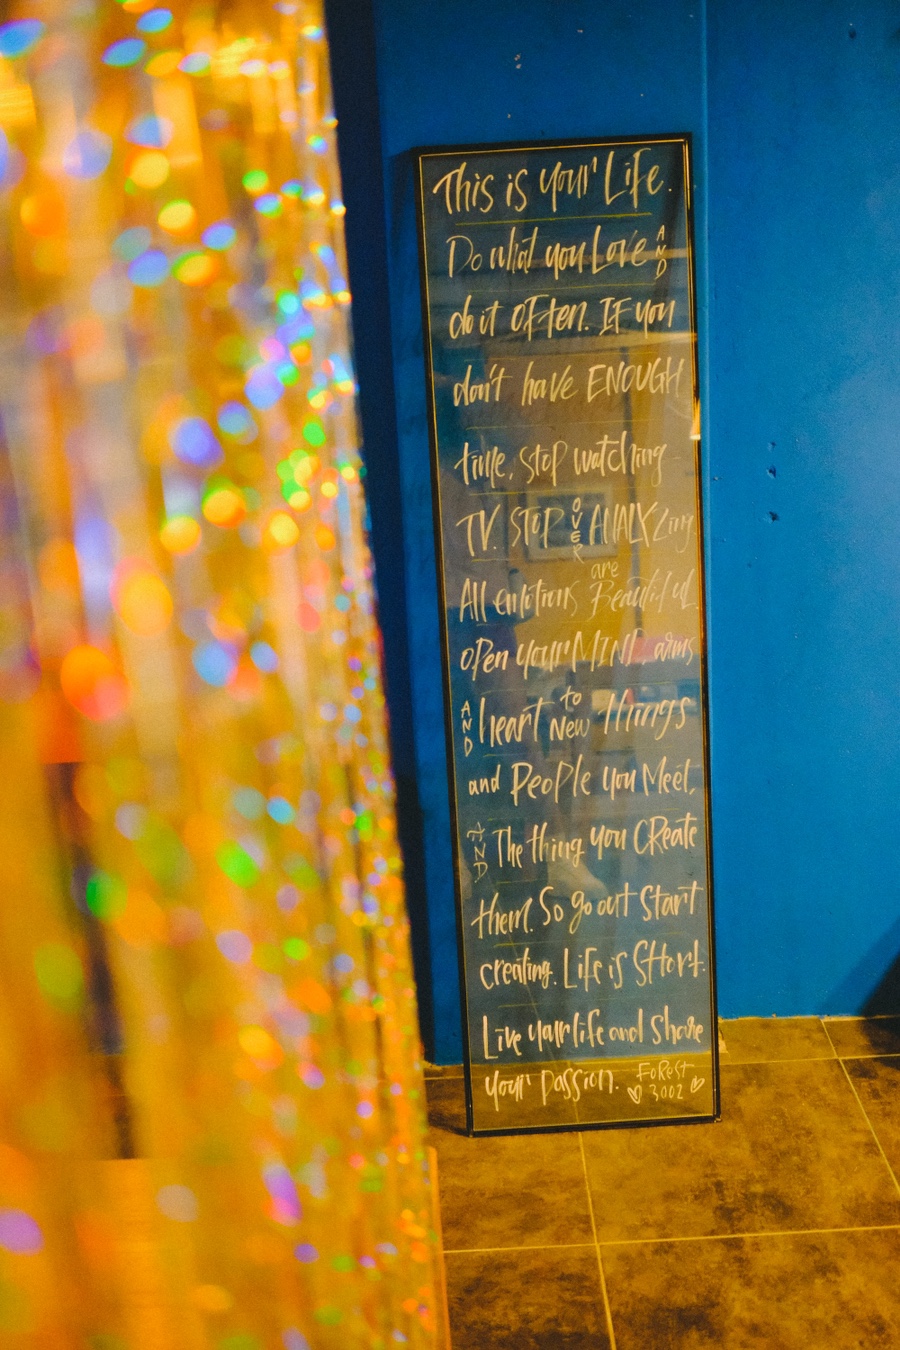 This is your Life.
Do what you Love AND
do it oFten. IF you
don't have ENOUGH
time, stop watching
TV. STOP OVER ANALYZing.
All emotions are Beautiful.
OPen your MIND, arms
AND heart to New Things
and PeoPle you Meet,
AND The thing you CReate
them. So go out Start
creating. LiFe is SHort.
Live your life and share
your passion. FoRest
3002